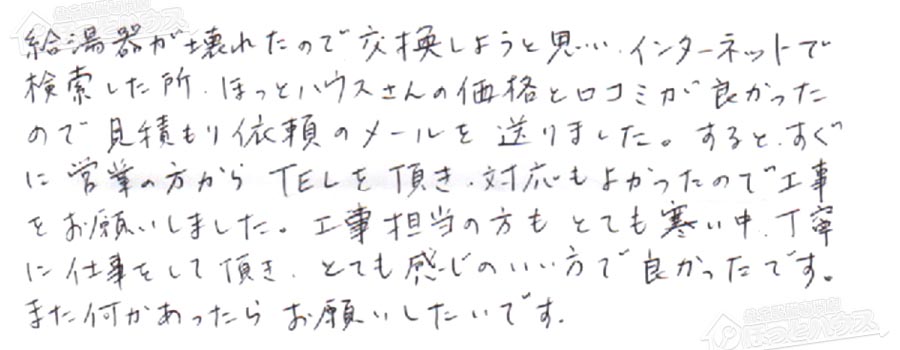 給湯器が壊れたので交換しようと思い、インターネットで
検索した所、ほっとハウスさんの価格と口コミが良かった
ので見積もり依頼のメールを送りました。すると、すぐ
に営業の方からTELを頂き、対応もよかったので工事
をお願いしました。工事担当の方もとても寒い中、丁寧
に仕事をして頂き、とても感じのいい方で良かったです。
また何かあったらお願いしたいです。
ほっとハウス